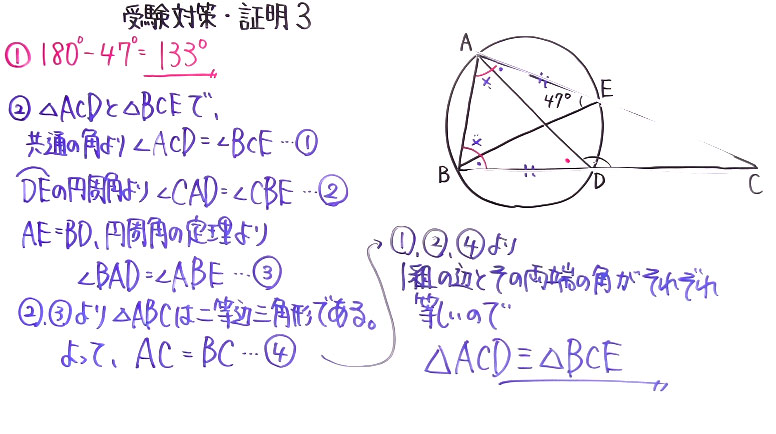 受験対策・証明3
① 180°-47°=133°
② △ACDと△BCEで、
共通の角より∠ACD=∠BCE…①
DEの円周角より∠CAD=∠CBE…②
AE=BD、円周角の定理より
∠BAD=∠ABE…③
②,③より△ABCは二等辺三角形である。
よって、AC=BC…④
①,②,④より
1組の辺とその両端の角がそれぞれ
等しいので
△ACD≡△BCE
A
E
47°
×
×
B
D
C